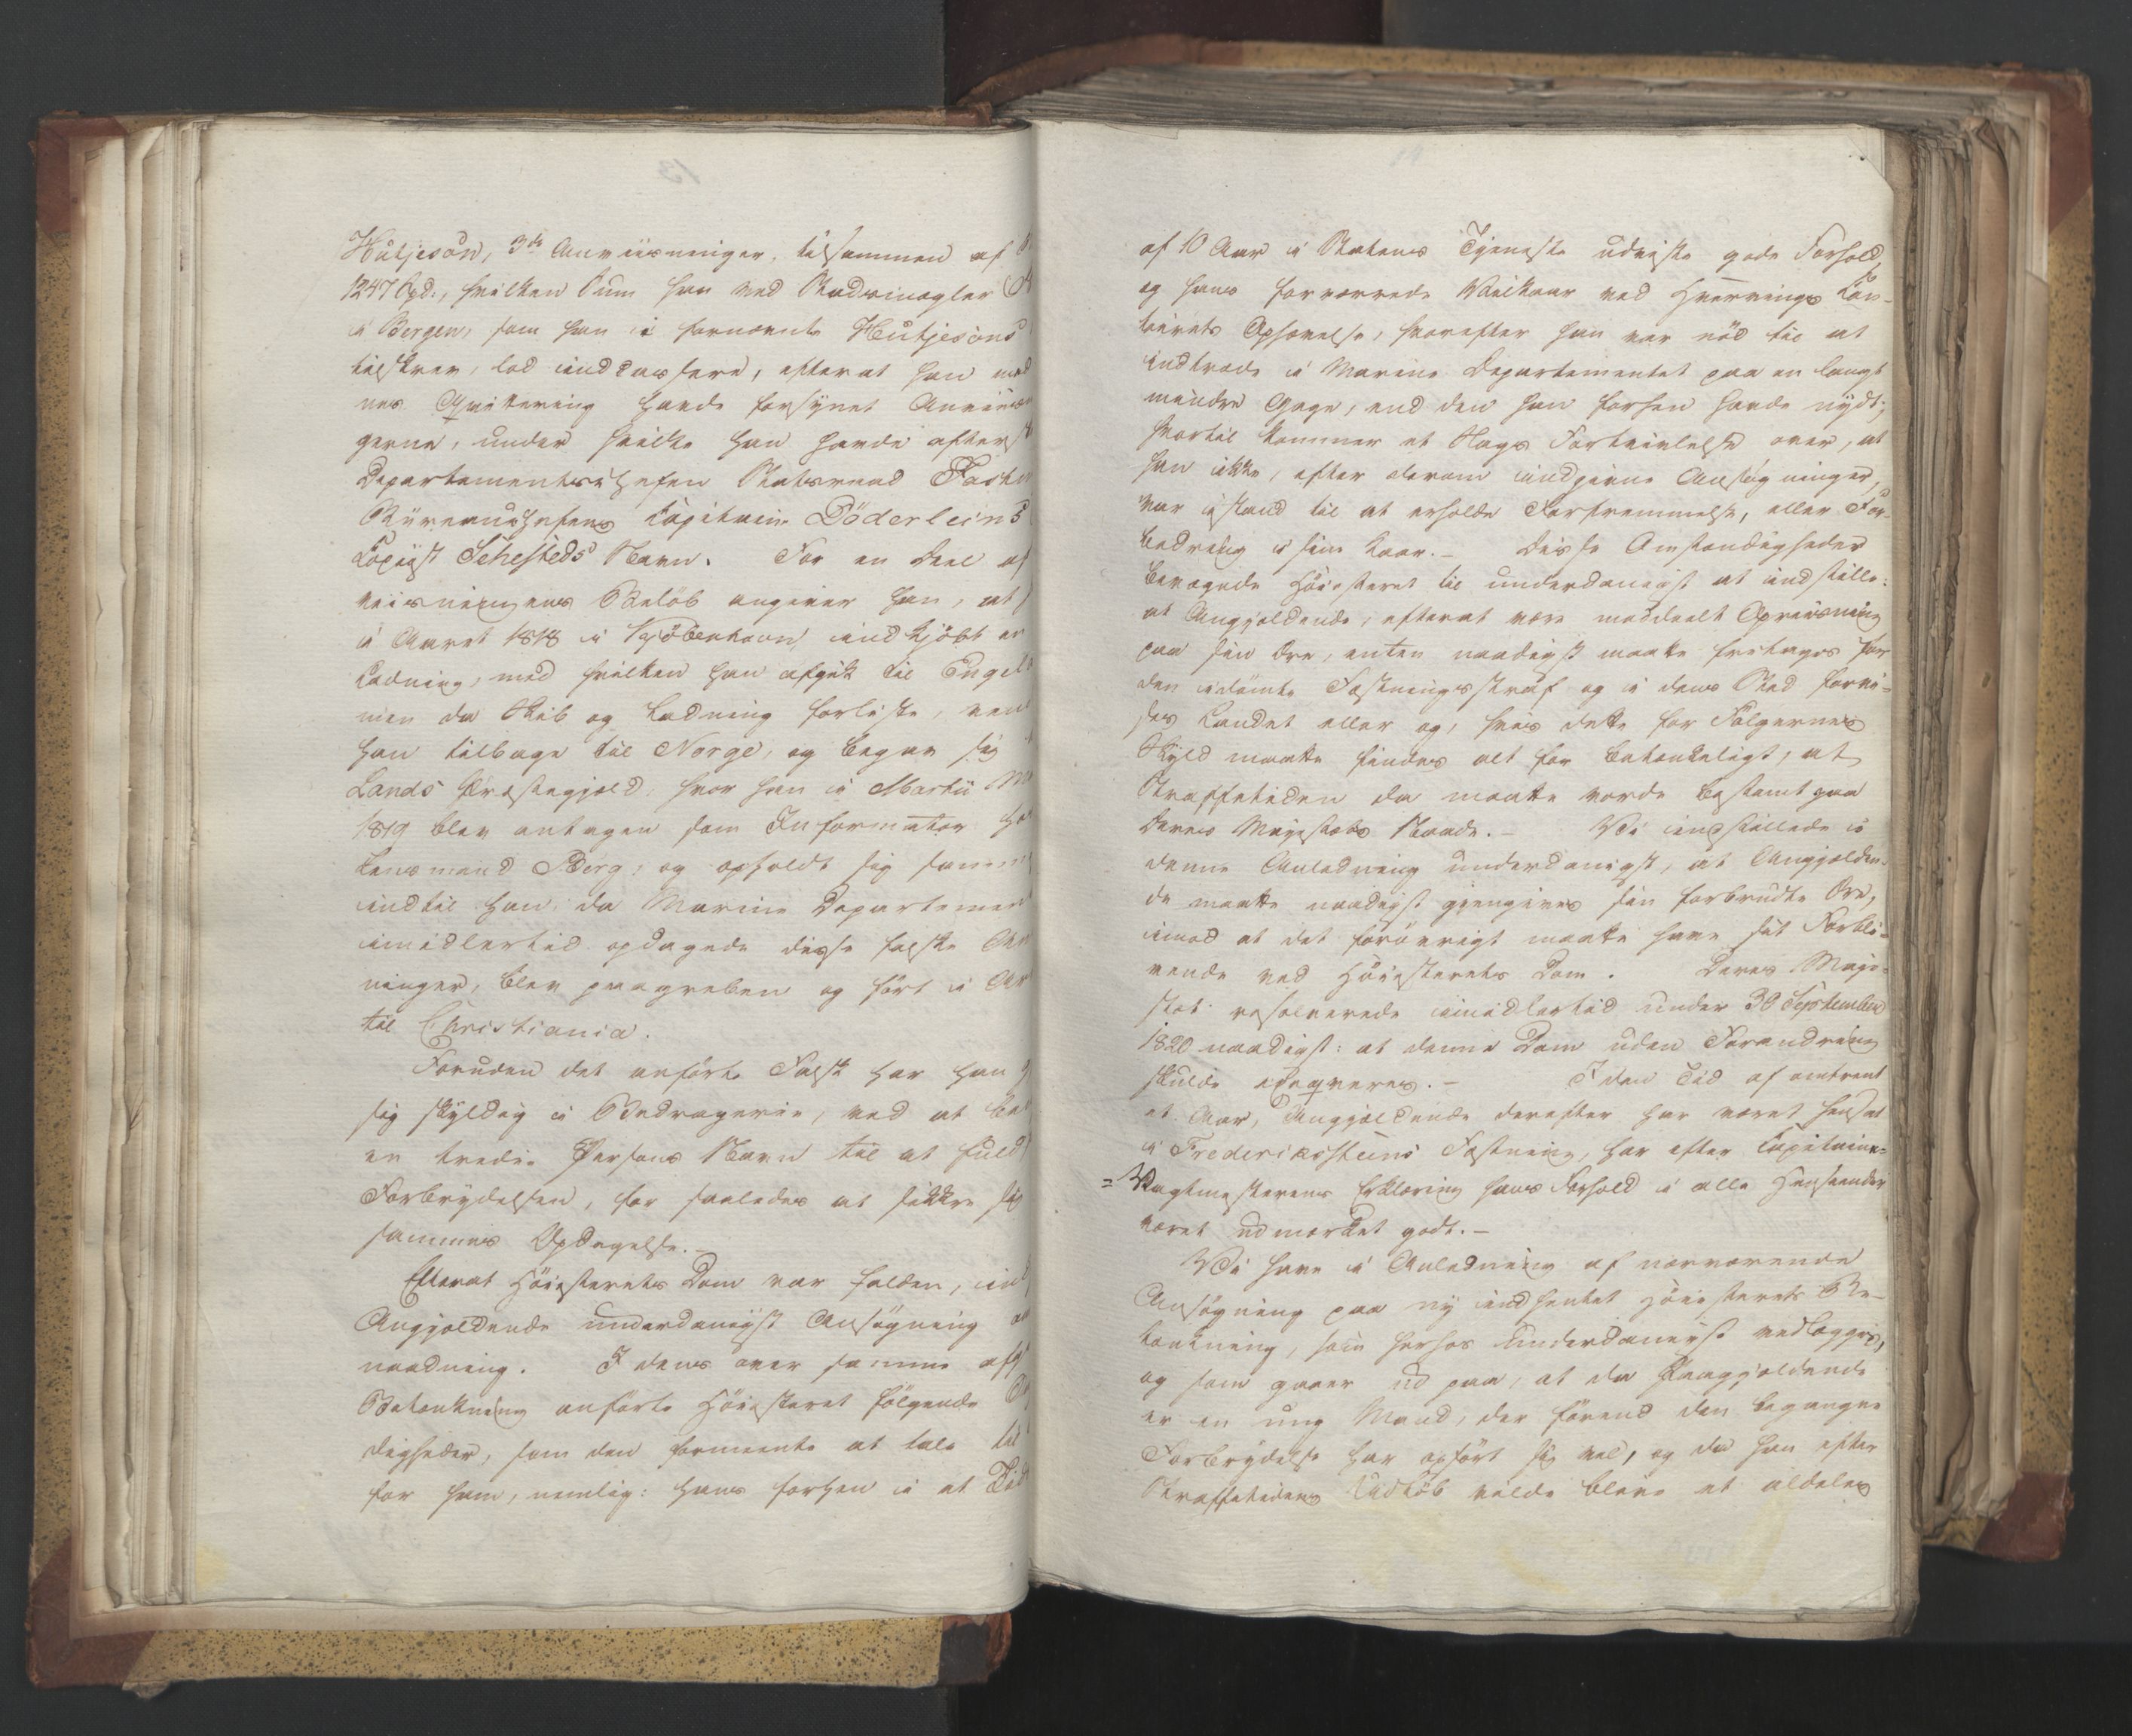 Hütjesön, 3de Anviisninger, tilsammen af
1247 Spd., hvilken Sum han ved Stadsmægler
i Bergen, som han i fornævnte Hütjesöns
tilskrev, lod indcassere, efterat han med
nes Qvittering havde forsynet Anviisn
gerne, under hvilke han havde efters
Departementschefen Statsraad Fasting
Büreauchefens Capitain Döderleins
Copiist Schesteds Navn. For en Deel af
viisningens Beløb angiver han, at
i Aaret 1818 i Kjöbenhavn indkjöbt en
Ladning, med hvilken han afgik til Engel
men da Skib og Ladning forliste, ven
han tilbage til Norge, og begav sig
Lands Præstegjeld, hvor han i Martii
1819 blev antagen som Informator ho
Lensmand Berg, og opholdt sig samme
indtil han, da Marine Departemen
imidlertid opdagede disse falske An
ninger, blev paagreben og fört i Ar
til Christiania.
Foruden det anförte Falsk har han
sig skyldig i Bedragerie, ved at be
en tredie Persons Navn til at fuld
Forbrydelsen, for saaledes at sikkre sig
sammes Opdagelse.-
Efterat Höiesterets Dom var falden, ind
Angjeldende underdanigst Ansögning om
naadning. I dens over samme afg
Betænkning anförte Höiesteret fölgende
digheder, som den formeente at tale til
for ham, nemlig: hans forhen i et Tid
af 10 Aar i Statens Tjeneste udviste gode Forhold,
og hans forværrede Vilkaar ved Hvervings Con-
toirets Ophævelse, hvorefter han var nød til at
indtræde i Marine Departementet paa en langt
mindre Gage, end den han forhen havde nydt;
hvortil kommer et Slags Fortvivlelse over, at
han ikke, efter derom indgivne Ansøgninger,
var istand til at erholde Forfremmelse, eller For-
bedring i sine Kaar.- Disse Omstændigheder
bevægede Höiesteret til underdanigst at indstille:
at Angjeldende, efterat være meddeelt Opreisning
paa sin Ære, enten naadigst maatte fritages for
den idömte Fæstningsstraf og i dens Sted forvi-
ses Landet eller og, hvis dette for Fölgernes
Skyld maatte findes alt for betænkeligt, at
Straffetiden da maatte vorde bestemt paa
Deres Majestæts Naade.- Vi indstillede i
denne Anledning underdanigst, at Angjelden-
de maatte naadigst gjengives sin forbrudte Ære,
imod at det forövrigt maatte have sit Forbli-
vende ved Höiesterets Dom. Deres Maje-
stæt resolverede imidlertid under 30 September
1820 naadigst: at denne Dom uden Forandring
skulde exeqveres.- I den Tid af omtrent
et Aar, Angjeldende derefter har været hensat
i Frederikssteens Fæstning, har efter Capitain-
=Vagtmesterens Erklæring hans Forhold i alle Henseender
været udmærket godt.-
Vi have i Anledning af nærværende
Ansøgning paa ny indhentet Höiesterets Be-
tænkning, som herhos underdanigst vedlægges,
og som gaaer ud paa, at da Paagjeldende
er en ung Mand, der förend den begangne
Forbrydelse har opfört sig vel, og da han efter
Straffetidens Udløb vilde blive et aldeles